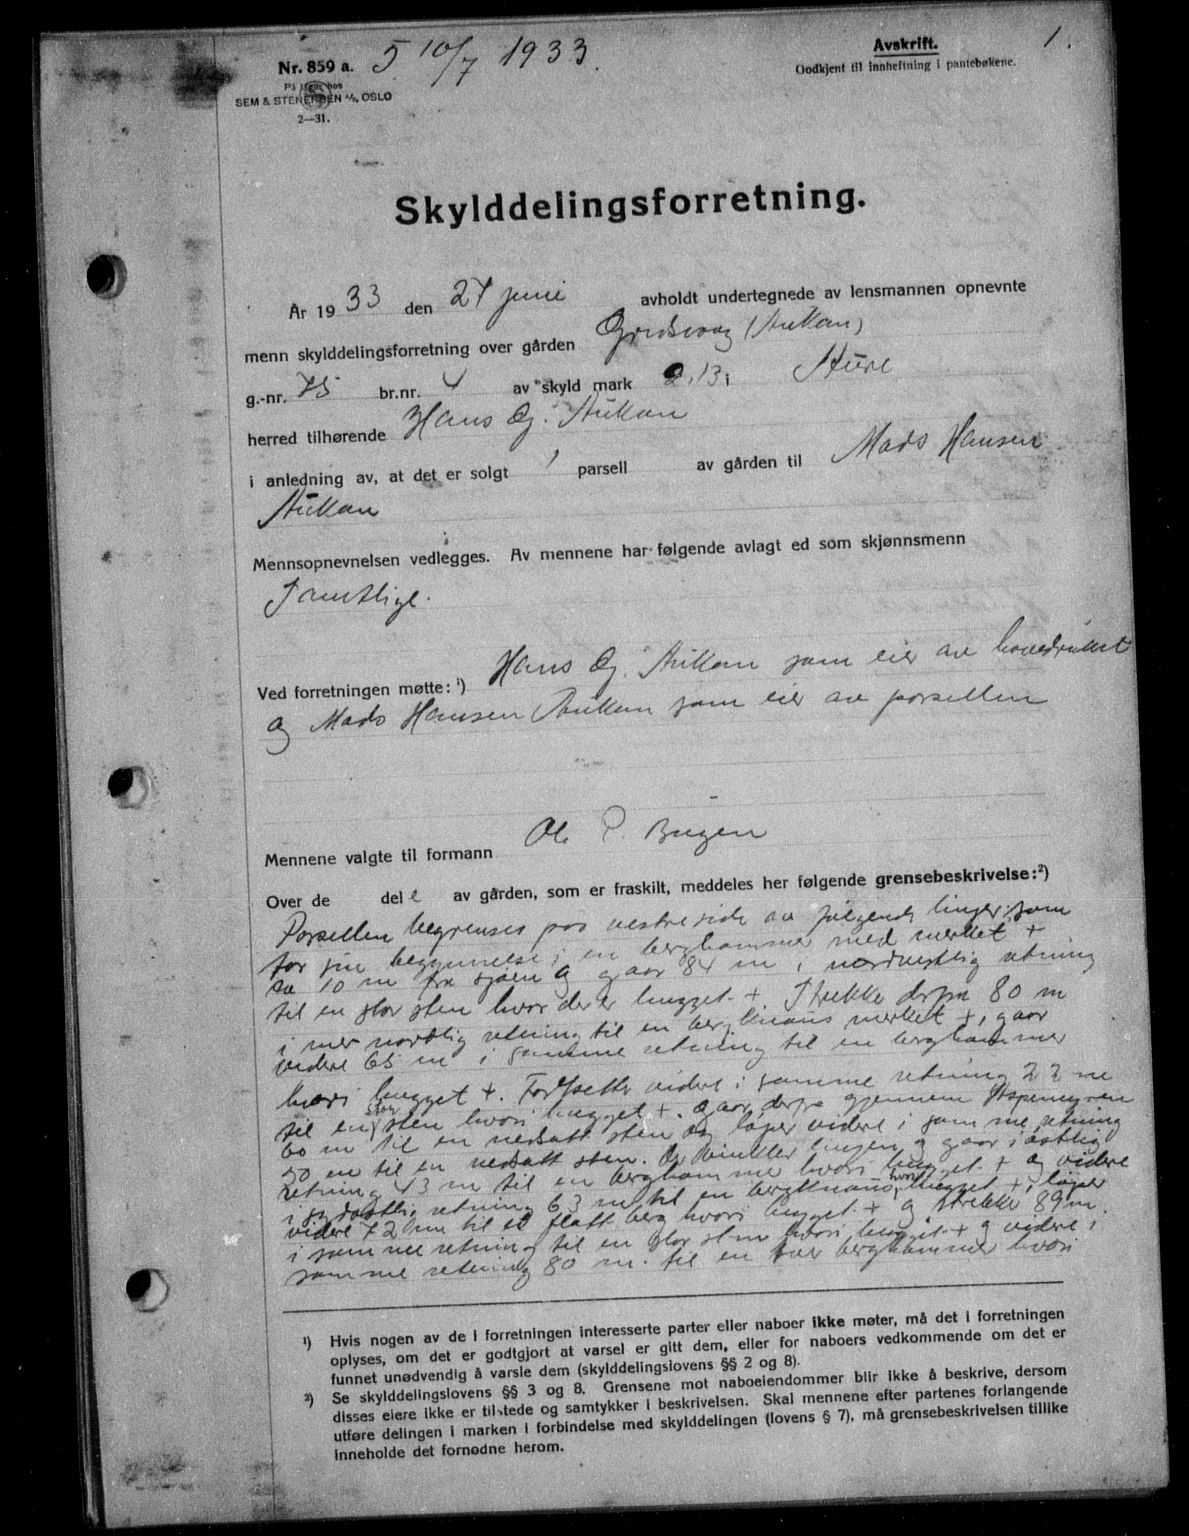 Nr. 859 a. 5 10/7 1933. Avskrift. 1.
Godkjent til innheftning i pantebøkene.
På lager hos
SEM & STENERSEN A/S, OSLO
2—31.
Skylddelingsforretning.
År 1933 den 27 juni avholdt undertegnede av lensmannen opnevnte
menn skylddelingsforretning over gården (Aukan)
g.-nr. 75 br.nr. 4 av skyld mark 2.13 i Aure
herred tilhørende Hans Og. Aukan
i anledning av, at det er solgt 1 parsell av gården til Mads Hansen
Aukan
Mennsopnevnelsen vedlegges. Av mennene har følgende avlagt ed som skjønnsmenn
Samtlige.
Ved forretningen møtte: ¹) Hans Og. Aukan som eier av hovedbruket
og Mads Hansen Aukan som eier av parsellen
Mennene valgte til formann Ole P. Bugen
Over de dele av gården, som er fraskilt, meddeles her følgende grensebeskrivelse: ²)
Parsellen begrenses paa vestre side av følgende linjer: som
tar sin begynnelse i en berghammer med merket +
ca 10 m fra sjøen og gaar 84 m i nordvestlig retning
til en stor sten hvor der er hugget +. Strekke derfra 80 m
i mer nordlig retning til en bergknaus merket +, gaar
videre 65 m i samme retning til en berghammer
hvori hugget +. Fortsetter videre i samme retning 22 m
til en stor sten hvori hugget +. gaar derfra gjennem
60 m til en nedsatt sten og løper videre i samme retning
50 m til en nedsatt sten. Der vinkler linjen og gaar i østlig
retning 43 m til en berghammer hvori hugget + og videre
i sydøstlig retning 63 m til en bergknaus hvori hugget +, løper
videre 72 m til et flatt berg hvori hugget + og strekke 89 m.
i samme retning til en stor sten hvori hugget + og videre i
samme retning 80 m. til en berghammer hvori
¹) Hvis nogen av de i forretningen interesserte parter eller naboer ikke møter, må det i forretningen
oplyses, om det er godtgjort at varsel er gitt dem, eller for naboers vedkommende om det er
funnet unødvendig å varsle dem (skylddelingslovens §§ 2 og 8).
²) Se skylddelingslovens §§ 3 og 8. Grensene mot naboeiendommer blir ikke å beskrive, dersom
disses eiere ikke er tilstede og samtykker i beskrivelsen. Skal mennene efter partenes forlangende
utføre delingen i marken i forbindelse med skylddelingen (lovens § 7), må grensebeskrivelsen tillike
inneholde det fornødne herom.